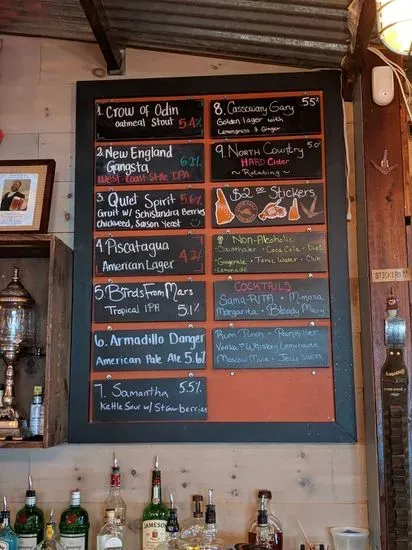 1. Crow of Odin
oatmeal Stout 5.4%
2. New England
Gangsta 6.2%
West-Coast Style IPA
3. Quiet Spirit 5.6%
Gruit w/ Schisandra Berries
Chickweed, Saison Yeast
4. Piscataqua
American Lager 4.2%
5. Birds From Mars
Tropical IPA 5.1%
6. Armadillo Danger
American Pale Ale 5.6%
7. Samantha 5.5%
Kettle Sour w/ Strawberries
8. Cassowary Gary 5.5%
Golden lager with
Lemongrass & Ginger
9. North Country 5.0%
HARD Cider
~ Rotating ~
$2.00 Stickers
Non-Alcoholic
Clausthaler • Coca Cola • Diet
Gingerale • Tonic Water • Club
Lemonade
COCKTAILS
Sama-RITA • Mimosa
Margarita • Bloody Mary
Rum Punch • Painkiller
Vodka & Whiskey Lemonade
Moscow Mule •
STICKERS!!!
JAMESON